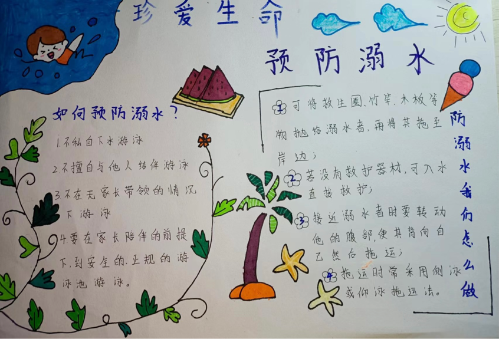 珍爱生命
预防溺水
如何预防溺水?
1.不私自下水游泳
2.不擅自与他人结伴游泳
3.不在无家长带领的情况
下游泳
4.要在家长陪伴的前提
下,到安全的,正规的游
泳池游泳
可将救生圈、竹竿、木板等
物抛给溺水者,再将其拖至
岸边;
若没有救护器材,可入水
直接救护;
接近溺水者时要转动
他的腹部,使其背向自
己然后拖运;
拖运时常采用侧泳
或仰泳拖运法。
防溺水我们怎么做